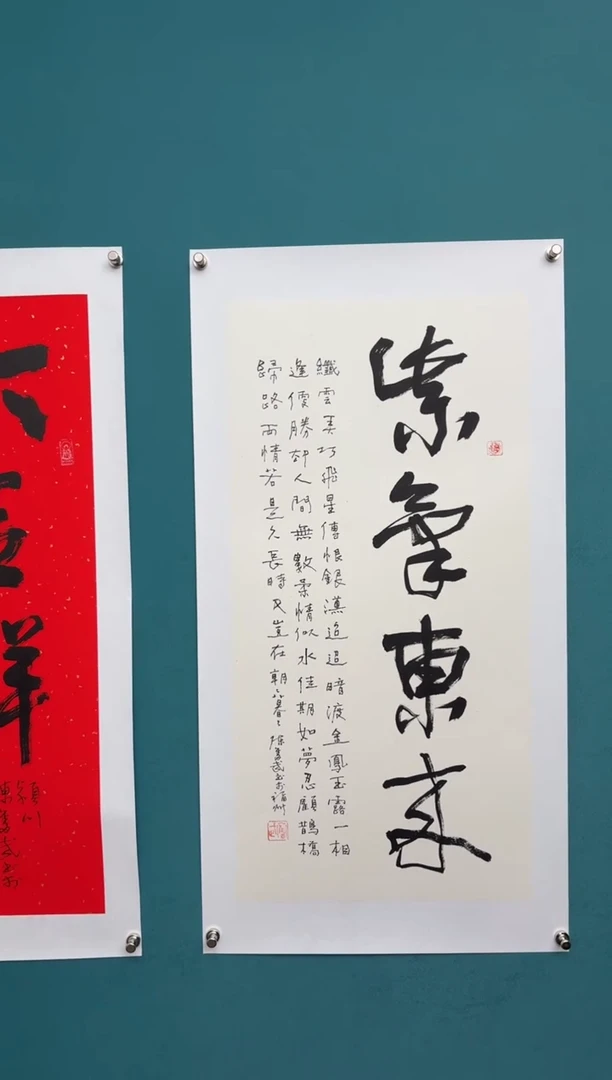 紫氣東来
纖雲弄巧飛星傳恨銀漢迢迢暗渡金鳳玉露一相
逢便勝却人間無數柔情似水佳期如夢忍顧鵲橋
歸路兩情若是久長時又豈在朝々暮々 陳勇武书於福州